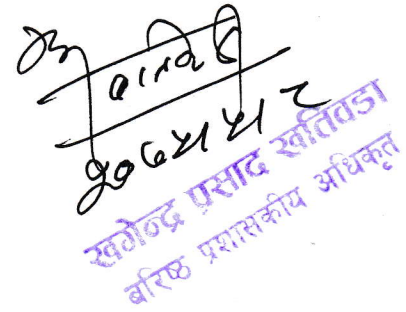 २०७५।५।२
खगेन्द्र प्रसाद खतिवडा
बरिष्ठ प्रशासकीय अधिकृत